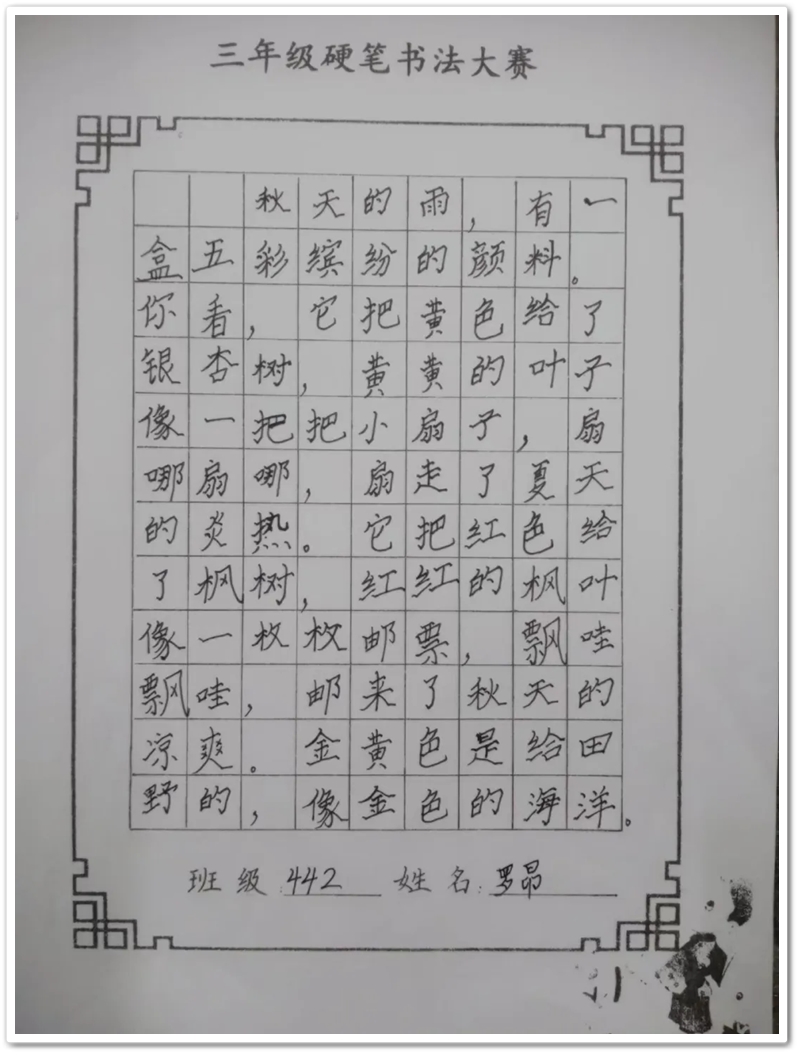 三年级硬笔书法大赛
秋天的雨，有一
盒五彩缤纷的颜料。
你看，它把黄色给了
银杏树，黄黄的叶子
像一把把小扇子，扇
哪扇哪，扇走了夏天
的炎热。它把红色给
了枫树，红红的枫叶
像一枚枚邮票，飘哇
飘哇，邮来了秋天的
凉爽。金黄色是给田
野的，像金色的海洋。
班级:442 姓名:罗昂